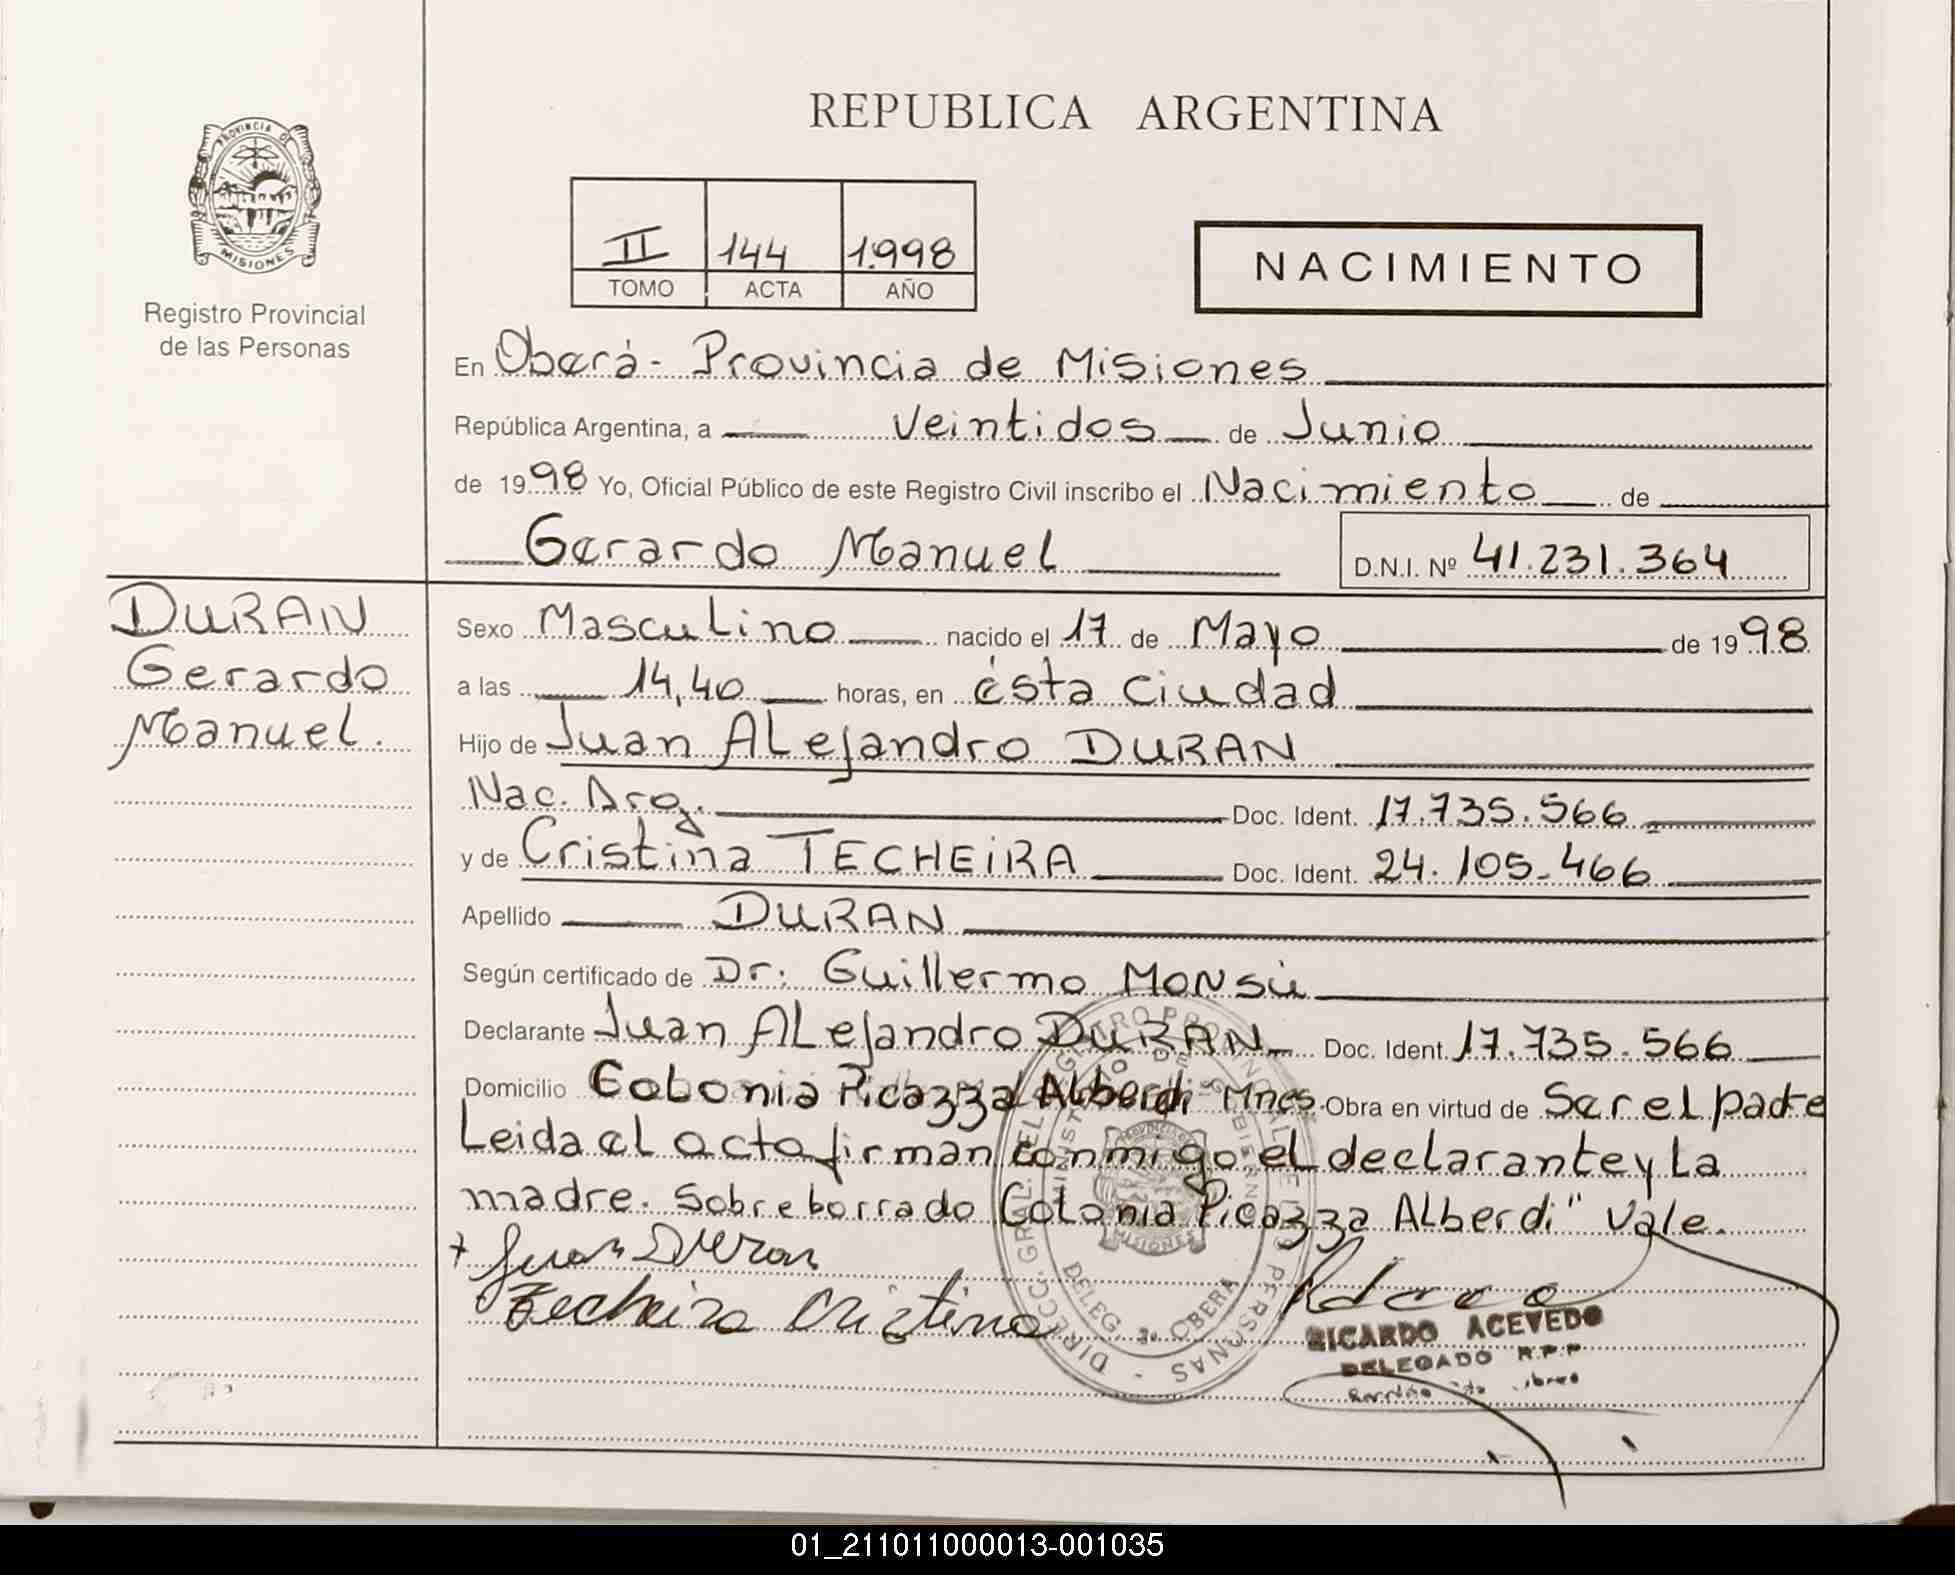 REPUBLICA ARGENTINA
PROVINCIA DE
MISIONES
Registro Provincial
de las Personas
II 144 1998
TOMO ACTA AÑO
NACIMIENTO
En Oberá - Provincia de Misiones
República Argentina, a veintidos de Junio
de 1998 Yo, Oficial Público de este Registro Civil inscribo el Nacimiento de
Gerardo Manuel D.N.I. Nº 41.231.364
DURAN
Gerardo
Manuel.
Sexo Masculino nacido el 17 de Mayo de 1998
a las 14,40 horas, en ésta ciudad
Hijo de Juan ALejandro DURAN
Nac. Arg. Doc. Ident. 17.735.566
y de Cristina TECHEIRA Doc. Ident. 24.105.466
Apellido DURAN
Según certificado de Dr: Guillermo MONSÚ
Declarante Juan ALejandro DURAN Doc. Ident. 17.735.566
Domicilio Colonia Picazza Alberdi" Mnes Obra en virtud de Ser el padre
Leida el acta firman conmigo el declarante y La
madre. Sobreborrado Colonia Picazza ALberdi" Vale.
Juan Duran
Techeira Cristina
RICARDO ACEVEDO
DELEGADO R.P.P
DIRECC. GRAL. DEL REGISTRO PROVINCIAL DE LAS PERSONAS
MINISTERIO DE GOBIERNO
MISIONES
DELEG. OBERA
01_211011000013-001035